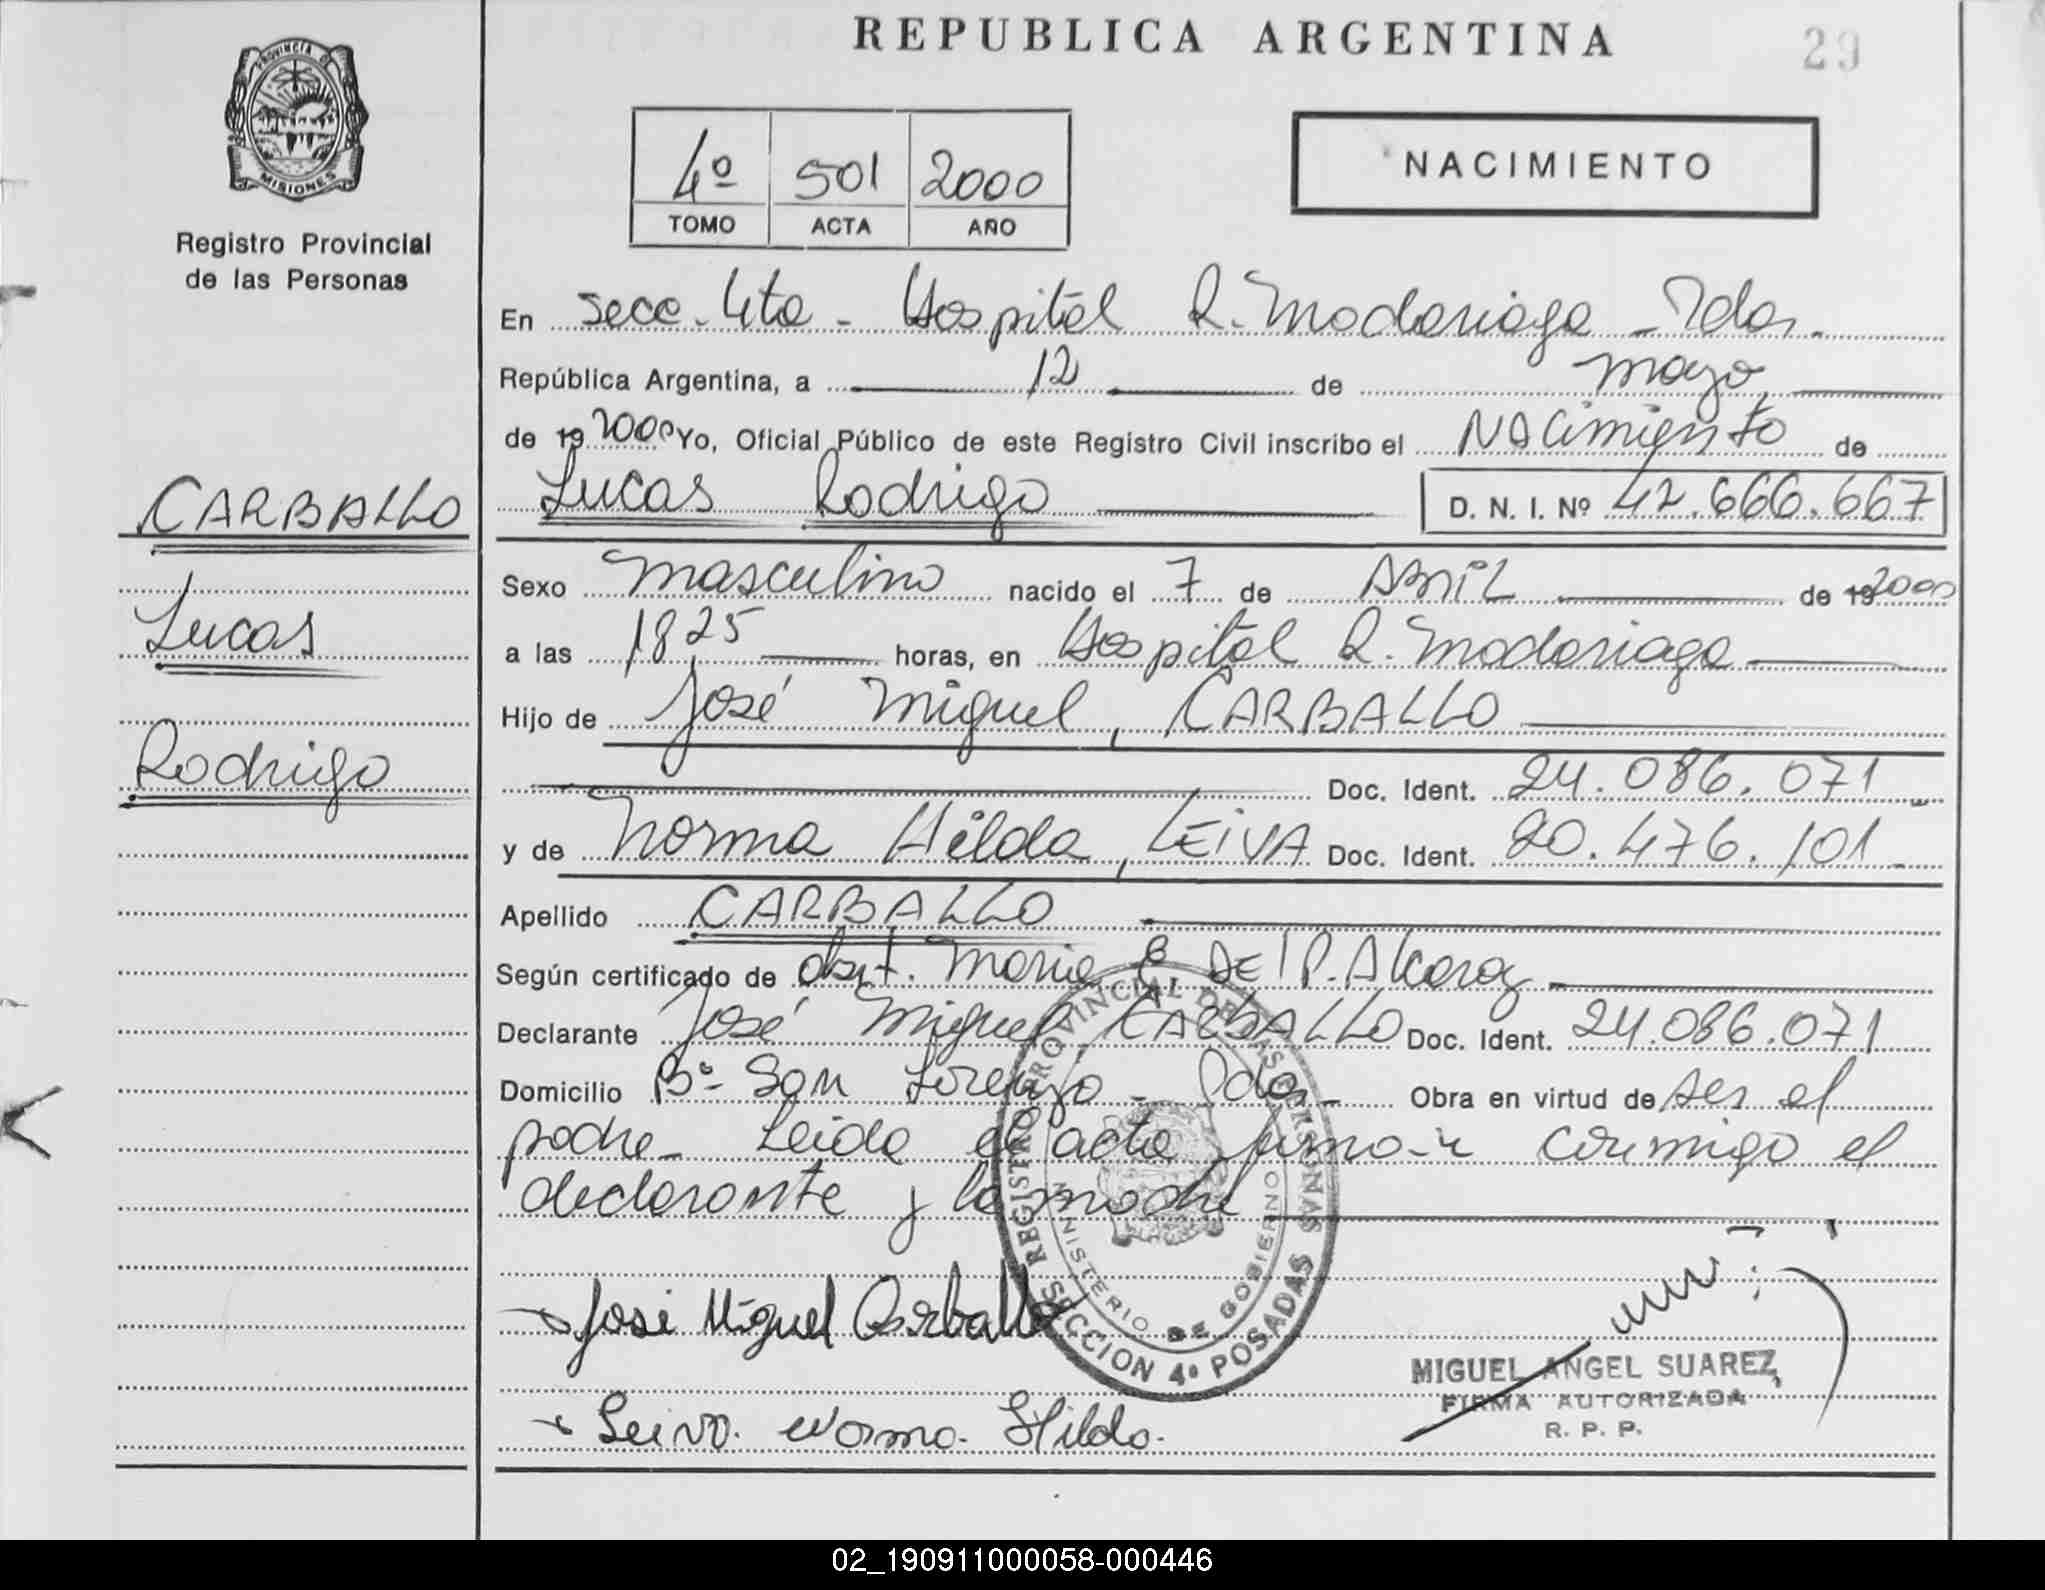 REPUBLICA ARGENTINA
29
PROVINCIA DE
MISIONES
Registro Provincial
de las Personas
4º 501 2000
TOMO ACTA AÑO
NACIMIENTO
En Secc. 4ta - Hospital R. Madariaga - Pdas.
República Argentina, a 12 de mayo
de 19 2000 Yo, Oficial Público de este Registro Civil inscribo el Nacimiento de
Lucas Rodrigo D. N. I. Nº 42.666.667
CARBALLO
Lucas
Rodrigo
Sexo masculino nacido el 7 de ABRIL de 19 2000
a las 1825 horas, en Hospital R. Madariaga
Hijo de José Miguel, CARBALLO
Doc. Ident. 24.086.071
y de Norma Hilda, LEIVA Doc. Ident. 20.476.101
Apellido CARBALLO
Según certificado de obst. Maria E DEl P. Alcaraz
Declarante José Miguel CARBALLO Doc. Ident. 24.086.071
Domicilio Bº San Lorenzo - Pdas - Obra en virtud de ser el
padre - Leida el acta firma-n conmigo el
declarante y la madre
REGISTRO PROVINCIAL DE LAS PERSONAS
MINISTERIO DE GOBIERNO
SECCION 4ª POSADAS
José Miguel Carballo
Leiva. Norma. Hilda.
MIGUEL ANGEL SUAREZ
FIRMA AUTORIZADA
R. P. P.
02_190911000058-000446